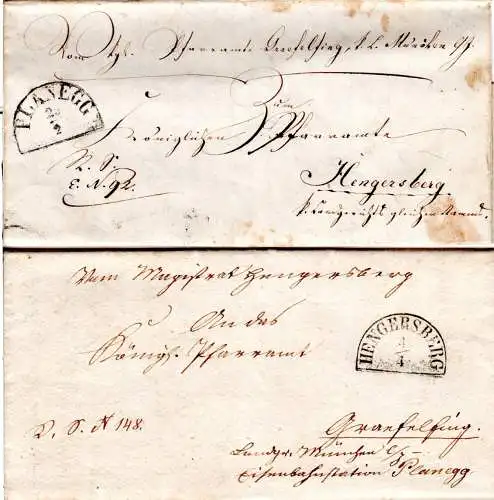 Vom Kgl. Pfarramte Graefelfing, k. L. München I/J.
PLANEGG
Zum
Königlichen Pfarramte
R. S.
E. N. 92.
Hengersberg
k. Landgerichts gleichen Namens
Vom Magistrat Hengersberg
An das
Königl. Pfarramt
HENGERSBERG
4
4
R. S. N 148.
Graefelfing.
Landgr. München
Eisenbahnstation Planegg